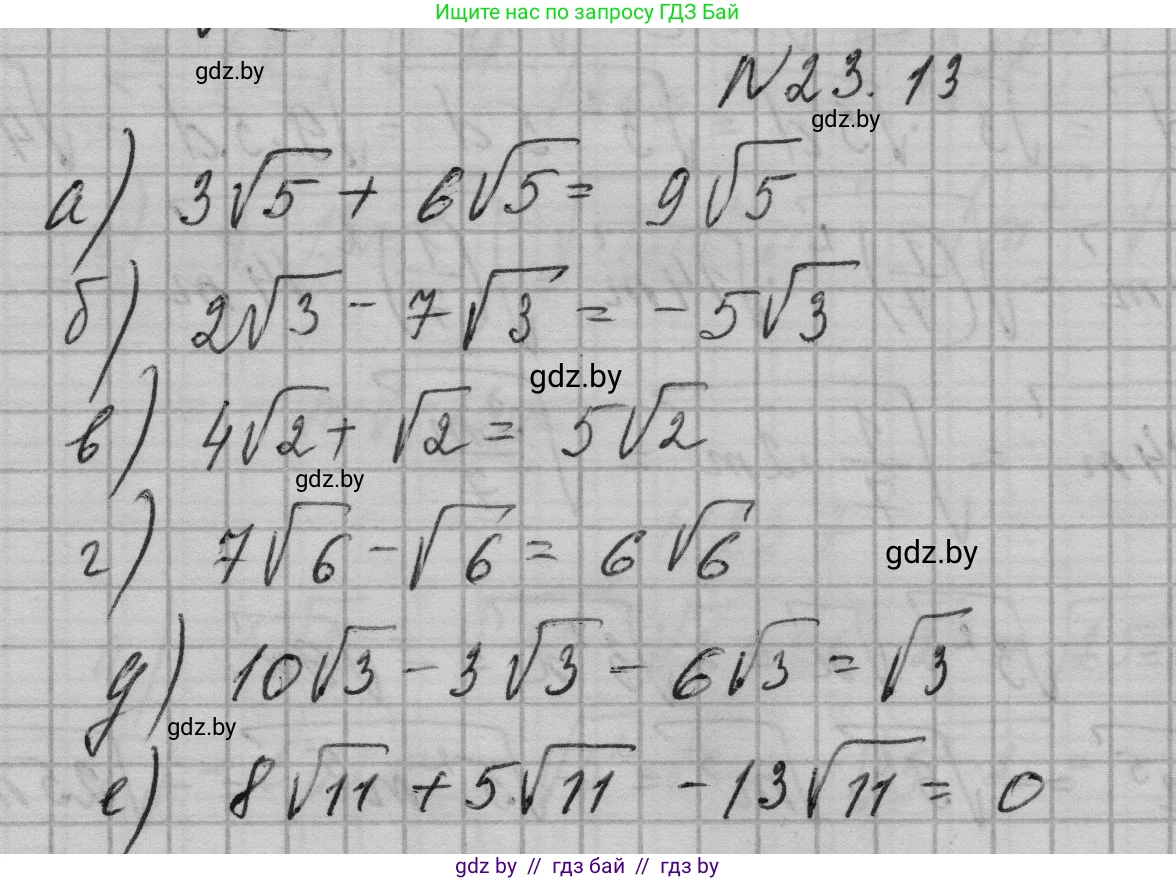 Ищите нас по запросу ГДЗ Бай
gdz.by
N23.13
gdz.by
а) 3√5 + 6√5 = 9√5
б) 2√3 - 7√3 = -5√3
gdz.by
в) 4√2 + √2 = 5√2
gdz.by
г) 7√6 - √6 = 6√6
gdz.by
д) 10√3 - 3√3 - 6√3 = √3
gdz.by
е) 8√11 + 5√11 - 13√11 = 0
gdz by // гдз бай // гдз by